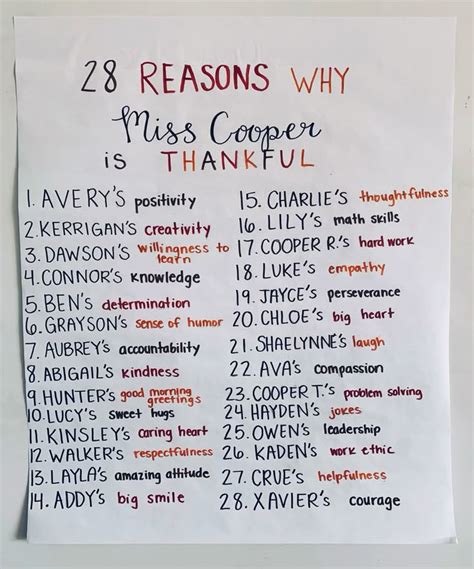 28 REASONS WHY
Miss Cooper
is THANKFUL
1. AVERY'S positivity
2. KERRIGAN'S creativity
3. DAWSON'S willingness to learn
4. CONNOR'S knowledge
5. BEN'S determination
6. GRAYSON'S sense of humor
7. AUBREY'S accountability
8. ABIGAIL'S kindness
9. HUNTER'S good morning greetings
10. LUCY'S sweet hugs
11. KINSLEY'S caring heart
12. WALKER'S respectfulness
13. LAYLA'S amazing attitude
14. ADDY'S big smile
15. CHARLIE'S thoughtfulness
16. LILY'S math skills
17. COOPER R.'S hard work
18. LUKE'S empathy
19. JAYCE'S perseverance
20. CHLOE'S big heart
21. SHAELYNNE'S laugh
22. AVA'S compassion
23. COOPER T.'S problem solving
24. HAYDEN'S jokes
25. OWEN'S leadership
26. KADEN'S work ethic
27. CRUE'S helpfulness
28. XAVIER'S courage